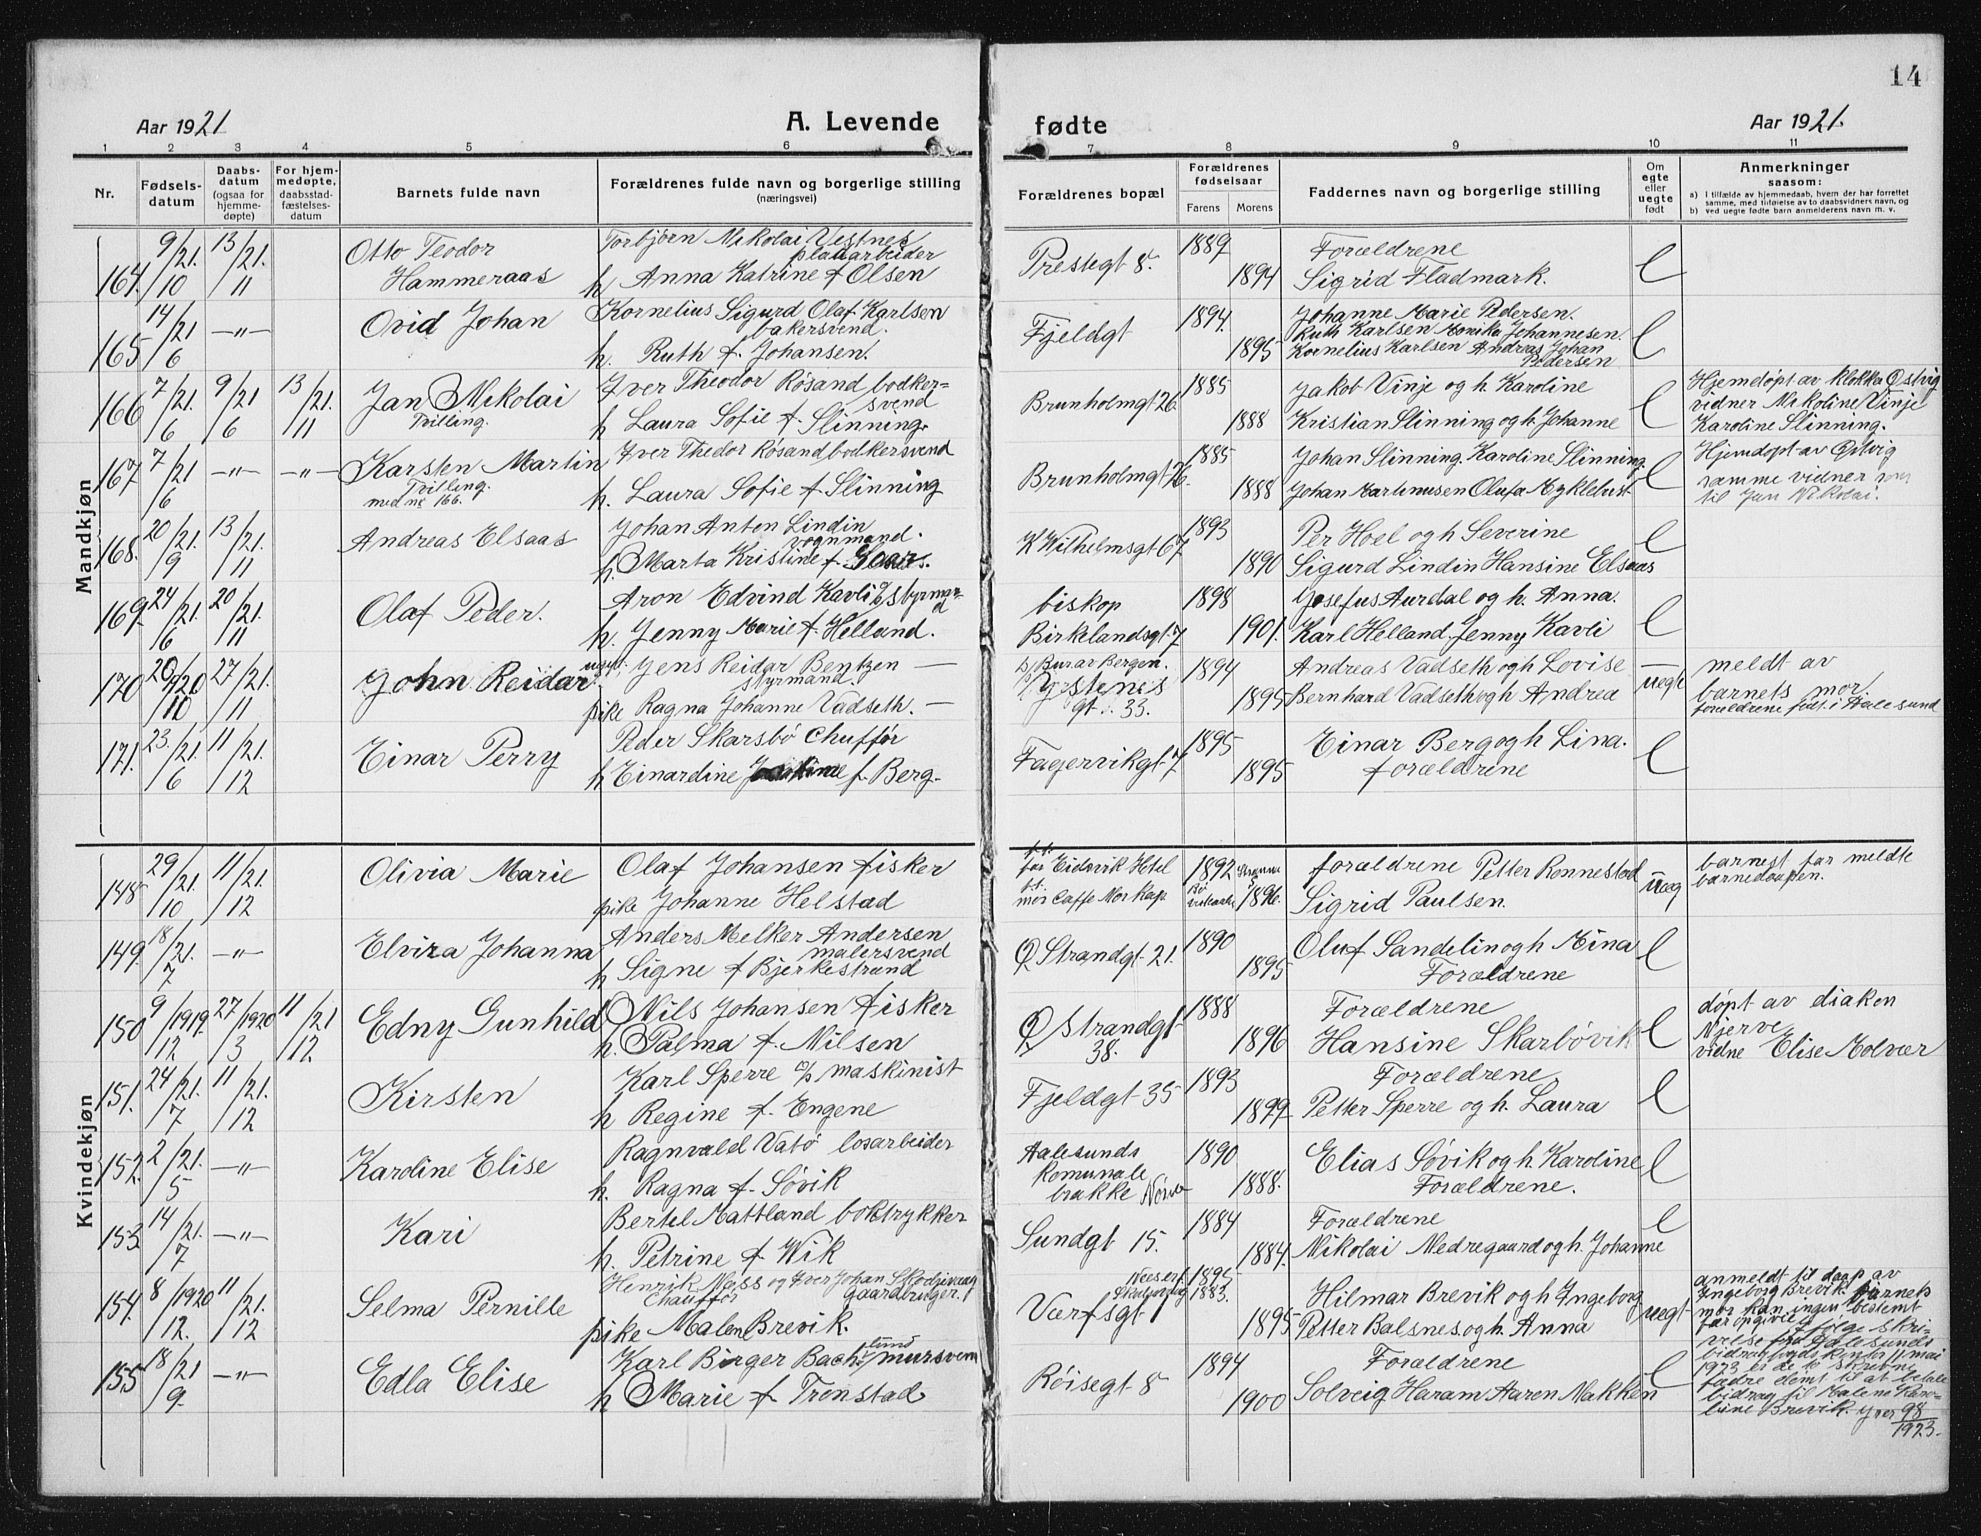 14
Aar 1921
A. Levende fødte
Aar 1921.
1 2 3 4 5 6 7 8 9 10 11
Nr.
Fødselsdatum
Daabsdatum (ogsaa for hjemmedøpte)
For hjemmedøpte, daabsstadfæstelsesdatum
Barnets fulde navn
Forældrenes fulde navn og borgerlige stilling (næringsvei)
Forældrenes bopæl
Forældrenes fødselsaar
Farens Morens
Faddernes navn og borgerlige stilling
Om egte eller uegte født
Anmerkninger saasom:
a) I tilfælde av hjemmedaab, hvem der har forrettet samme, med tilføielse av to daabsvidners navn, og
b) ved uegte fødte barn anmelderens navn m. v.
Mandkjøn
164. 9/10 21. 13/11 21. Otto Teodor Hammeraas
Torbjørn Nikolai Vestnes
h. Anna Katrine f Olsen
Prestegt 8. 1889 1894
Forældrene
Sigrid Fladmark.
165 14/6 21 -"- Ovid Johan
Kornelius Sigurd Olaf Karlsen
bakersvend.
h. Ruth f. Johansen.
Fjeldgt 1894. 1895
Johanne Marie Pedersen.
Ruth Karlsen Monika Johannesen.
Kornelius Karlsen Andreas Johan
Pedersen
166 7/6 21. 9/6 21 13/11 21. Jan Nikolai
Tvilling.
Iver Theodor Røsand bødker=
svend
h Laura Sofie f. Slinning.
Brunholmgt 26. 1885 1888
Jakob Vinje og h Karoline
Kristian Slinning og h. Johanne
Hjemdøpt av klokker Østvig
vidner Nikoline Vinje
Karoline Slinning.
167 7/6 21 -"- -"- Karsten Martin
Tvilling.
med nr 166.
Iver Theodor Røsand bødkersvend
h. Laura Sofie f Slinning
Brunholmgt 26. 1885 1888
Johan Slinning. Karoline Slinning.
Johan Martinusen Olufa Myklebust
Hjemdøpt av Østvig
samme vidner som
til Jan Nikolai.
168. 20/9 21. 13/11 21. Andreas Elsaas
Johan Anton Lindin
vognmand.
h. Marta Kristine f.
K Wilhelmsgt 67 1893 1890
Per Hoel og h Severine
Sigurd Lindin Hansine Elsaas
169. 24/6 21. 20/11 21. Olaf Peder.
Aron Edvind Kavli styrmand
h. Jenny Marie f. Helland.
biskop
Birkelandsgt. 7 1898 1901.
Josefus Aurdal og h. Anna.
Karl Helland. Jenny Kavli
170 20/10 20 27/11 21. John Reidar
ugift. Jens Reidar Bentzen —
styrmand.
pike Ragna Johanne Vadseth. —
gt. 33. 1894 1895
Andreas Vadseth og h Lovise
Bernhard Vadseth og h Andrea
uegte
meldt av
barnets mor
forældrene født i Aalesund
171. 23/6 21. 11/12 21. Einar Perry
Peder Skarsbö Chufför
h Einardine f. Berg.
Fagervikgt 7 1895 1895
Einar Berg og h Lina.
forældrene
Kvindekjøn
148 29/10 21. 11/12 21. Olivia Marie
Olaf Johansen fisker
pike Johanne Helstad
far Eidsvik Hotel
mor Caffe Nor Kap 1892 1896.
forældrene Petter Ronnestad
Sigrid Paulsen.
uegt
barnest far meldte
barnedaapen.
149. 18/7 21. -"- Elvira Johanna
Anders Melker Andersen
malersvend
h Signe f Bjerkestrand
Ø. Strandgt. 21. 1890 1895
Oluf Sandelin og h Mina
Forældrene
150 9/12 1919. 27/3 1920 11/12 21 Edny Gunhild
Nils Johansen fisker
h. Palma f. Nilsen
Østrandgt
38. 1888 1896
Forældrene
Hansine Skarbövik
døpt av diaken
Njerve
vidne Elise Molvær
151. 24/7 21. 11/12 21. Kirsten
Karl Sperre maskinist
h Regine f. Engene
Fjeldgt 35 1893 1899
Forældrene
Petter Sperre og h. Laura
152. 2/5 21. -"- Karoline Elise
Ragnvald Vatö losarbeider
h. Ragna f. Søvik
Aalesunds
komunale
brakke 1890 1888.
Elias Søvik og h. Karoline
Forældrene.
153 14/7 21. -"- Kari
Bertel Mattland boktrykker
h. Petrine f Wik
Sundgt 15. 1884 1884.
Forældrene
Nikolai Nedregaard og h. Johanne
154. 8/12. 1920 11/12 21. Selma Pernille
Chauffør gaardbruger.
pike Malene Brevik.
Værfsgt 1895 1883. 1895
Hilmar Brevik og h Ingeborg
Petter Balsnes og h. Anna
uegt
anmeldt til daap av
Ingeborg Brevik. Barnets
mor kan ingen bestemt
far opgive
1973 er de to skrevne
fædre dømt til at betale
bidrag til Malene Karo=
line Brevik. 98/1923.
155 18/9 21 -"- Edla Elise
Karl Birger Backlund mursvend
h Marie f Tronstad
Røisegt 8 1894 1900
Forældrene
Solveig Haram Aaren Nakken